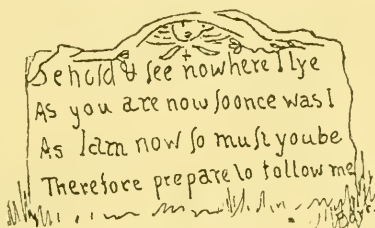 Behold & ſee nowhere I lye
As you are now ſoonce was I
As Iam now ſo muſt yoube
Therefore prepare to follow me